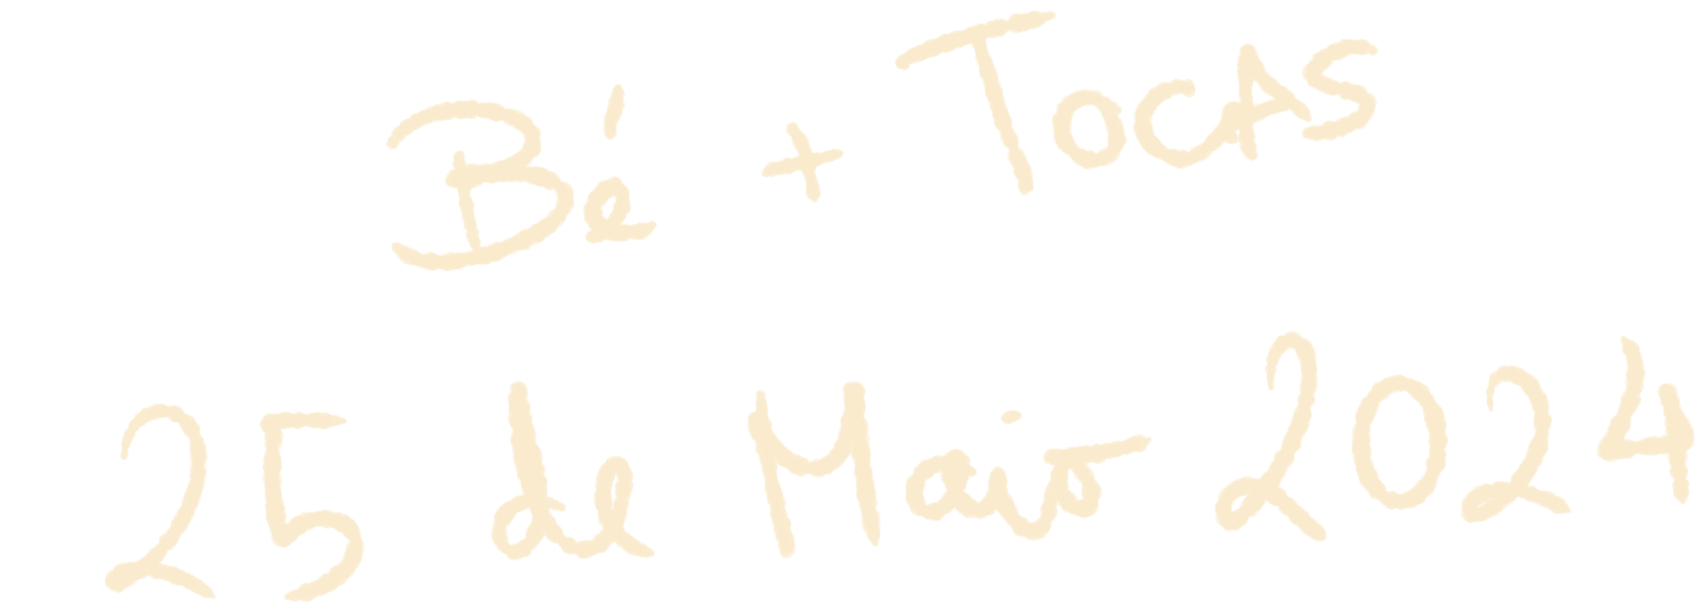 Bé + TOCAS
25 de Maio 2024